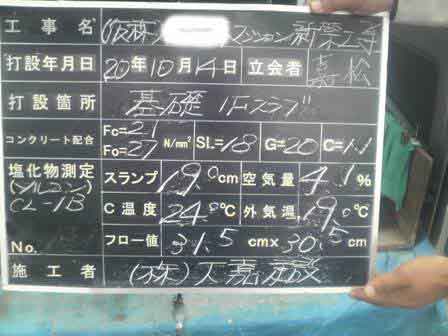 工事名 (仮称) マンション新築工事
打設年月日 20年10月14日 立会者 嘉松
打設箇所 基礎 1Fスラブ
コンクリート配合 Fc=21 Fo=27 N/mm² SL=18 G=20 C=1.1
塩化物測定 (ソルコン) CL-1B スランプ 19.0cm 空気量 4.1%
C温度 24.0℃ 外気温 19.0℃
No. フロー値 31.5cm×30.5cm
施工者 (株)